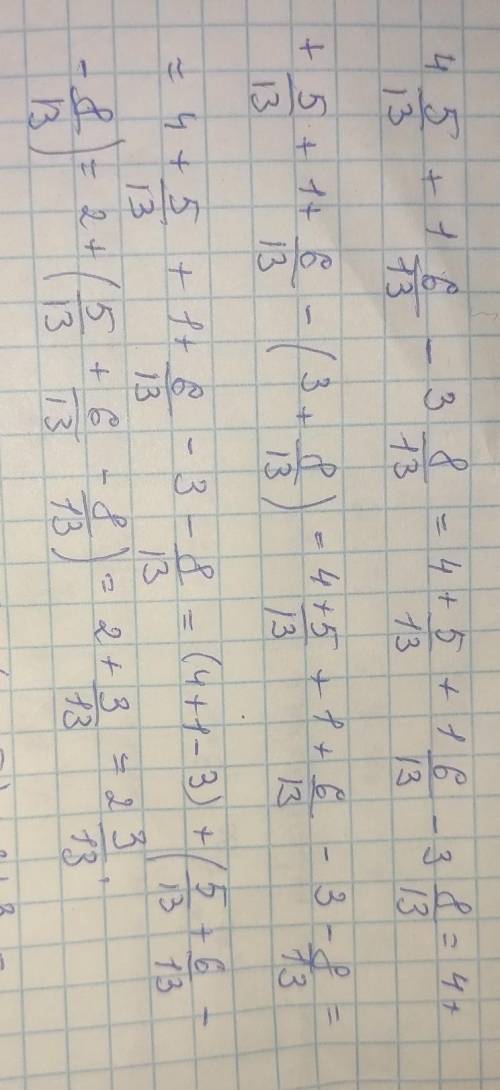 4 5/13 + 1 6/13 - 3 8/13 = 4 + 5/13 + 1 6/13 - 3 8/13 = 4 +
+ 5/13 + 1 + 6/13 - (3 + 8/13) = 4 + 5/13 + 1 + 6/13 - 3 - 8/13 =
= 4 + 5/13 + 1 + 6/13 - 3 - 8/13 = (4 + 1 - 3) + (5/13 + 6/13 -
- 8/13) = 2 + (5/13 + 6/13 - 8/13) = 2 + 3/13 = 2 3/13.